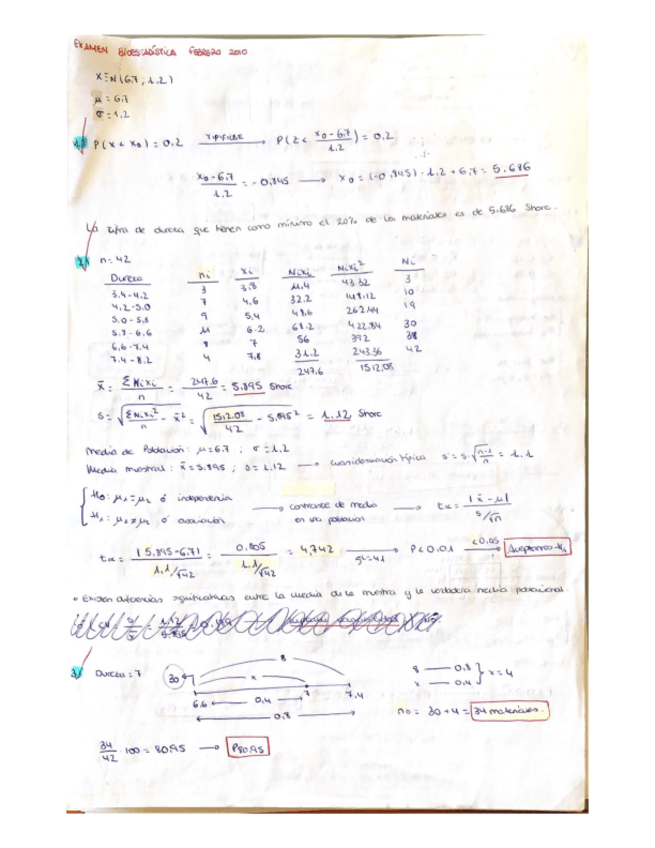 EXAMEN BIOESTADÍSTICA FEBRERO 2010
X≡N(6.7; 1.2)
μ = 6.7
σ = 1.2
1) P(x < x₀) = 0.2 TIPIFICAR → P(z < (x₀ - 6.7)/1.2) = 0.2
(x₀ - 6.7)/1.2 = -0.845 → x₀ = (-0.845) · 1.2 + 6.7 = 5.686
La cifra de dureza que tienen como mínimo el 20% de los materiales es de 5.686 Shore.
2) n = 42
Dureza ni xi Nixi Nixi² Ni
3.4-4.2 3 3.8 11.4 43.32 3
4.2-5.0 7 4.6 32.2 148.12 10
5.0-5.8 9 5.4 48.6 262.44 19
5.8-6.6 11 6.2 68.2 422.84 30
6.6-7.4 8 7 56 392 38
7.4-8.2 4 7.8 31.2 243.36 42
247.6 1512.08
x̄ = ΣNixi/n = 247.6/42 = 5.895 Shore
s = √(ΣNixi²/n - x̄²) = √(1512.08/42 - 5.895²) = 1.12 Shore
Media de Población: μ = 6.7 ; σ = 1.2
Media muestral: x̄ = 5.895 ; s = 1.12 → cuasidesviación típica s = s·√((n-1)/n) = 1.1
H₀: μ₁ = μ₂ ó independencia → contraste de media en una población → tα = |x̄ - μ|/(s/√n)
H₁: μ₁ ≠ μ₂ ó asociación
tα = |5.895 - 6.7|/(1.1/√42) = 0.805/(1.1/√42) = 4,742 gl=41 → P < 0.01 <0,05 → Aceptamos H₁
• Existen diferencias significativas entre la media de la muestra y la verdadera media poblacional.
3) Dureza = 7
8
30 x 7 7,4
6.6 0,4
0,8
8 — 0,8
x — 0,4 } x = 4
no = 30 + 4 = 34 materiales.
34/42 · 100 = 80.95 → P80.95